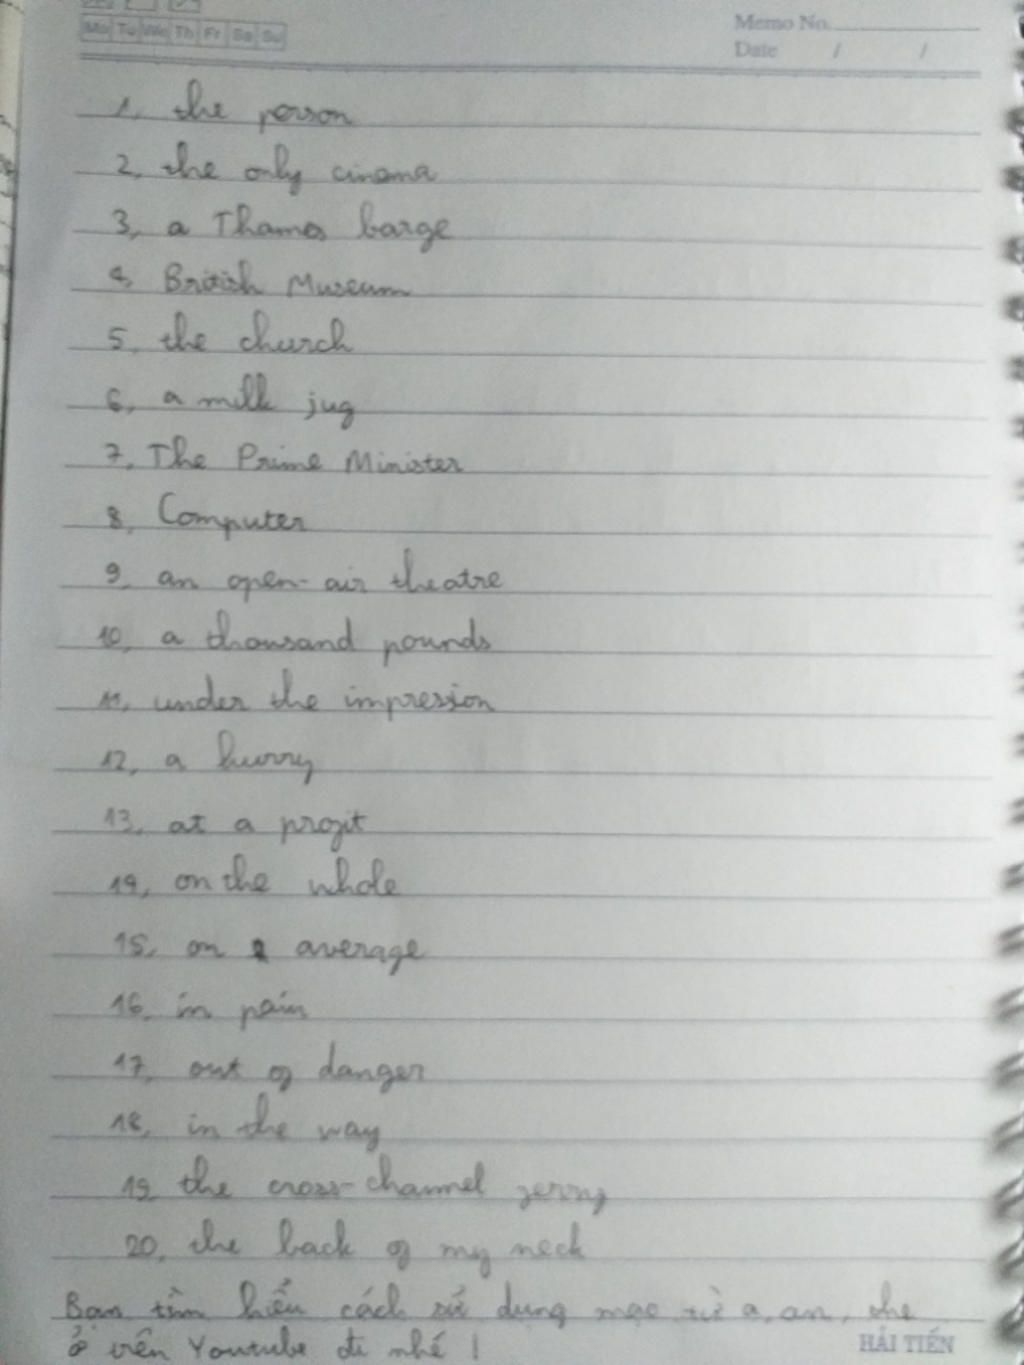 Mo Tu We Th Fr Sa Su
Memo No.
Date / /
1, the person
2, the only cinema
3, a Thames barge
4, British Museum
5, the church
6, a milk jug
7, The Prime Minister
8, Computer
9, an open-air theatre
10, a thousand pounds
11, under the impression
12, a hurry
13, at a profit
14, on the whole
15, on average
16, in pain
17, out of danger
18, in the way
19, the cross-channel ferry
20, the back of my neck
Bạn tìm hiểu cách sử dụng mạo từ a, an, the
ở trên Youtube đi nhé !
HẢI TIẾN